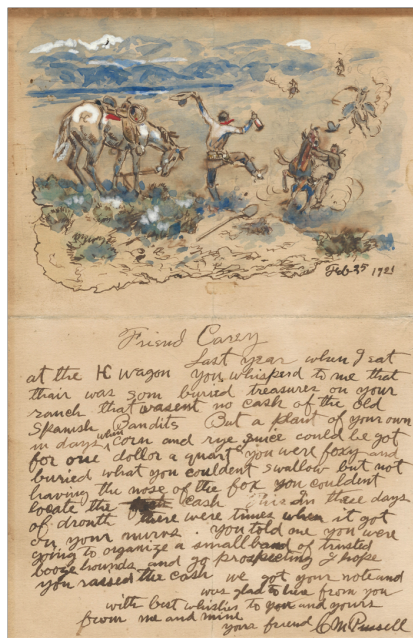 Feb 25 1921
Friend Carey
Last year when I eat
at the HC wagon you whisperd to me that
thair was som buried treasures on your
ranch that wasent no cash of the old
Spanish Bandits But a plant of your own
in days when corn and rye juice could be got
for one dollor a quart you were foxy and
buried what you couldent swallow but not
having the nose of the fox you couldent
locate the cash this in these days
of drouth there were times when it got
on your nurvs. you told me you were
going to organize a small band of trusted
booze hounds and go prospecting I hope
you raised the cash we got your note and
was glad to hear from you
with best whishes to you and yours
from me and mine
your friend C M Russell